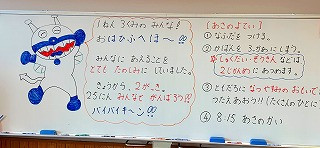 1ねん 3くみの みんな！
おはひふへほ〜!!
みんなに あえることを
とても たのしみに していました。
きょうから、2がっき。
25にん みんなと がんばろう!!
バイバイキ〜ン!!
【あさのよてい】
① なふだを つける。
② かばんを 3.かめにしまう。
しゅくだい・ぞうきん などは
2じかんめに あつめます。
③ ともだちに なつやすみの おもいで
つたえあおう!!(たくさんのひとに
④ 8:15 あさのかい